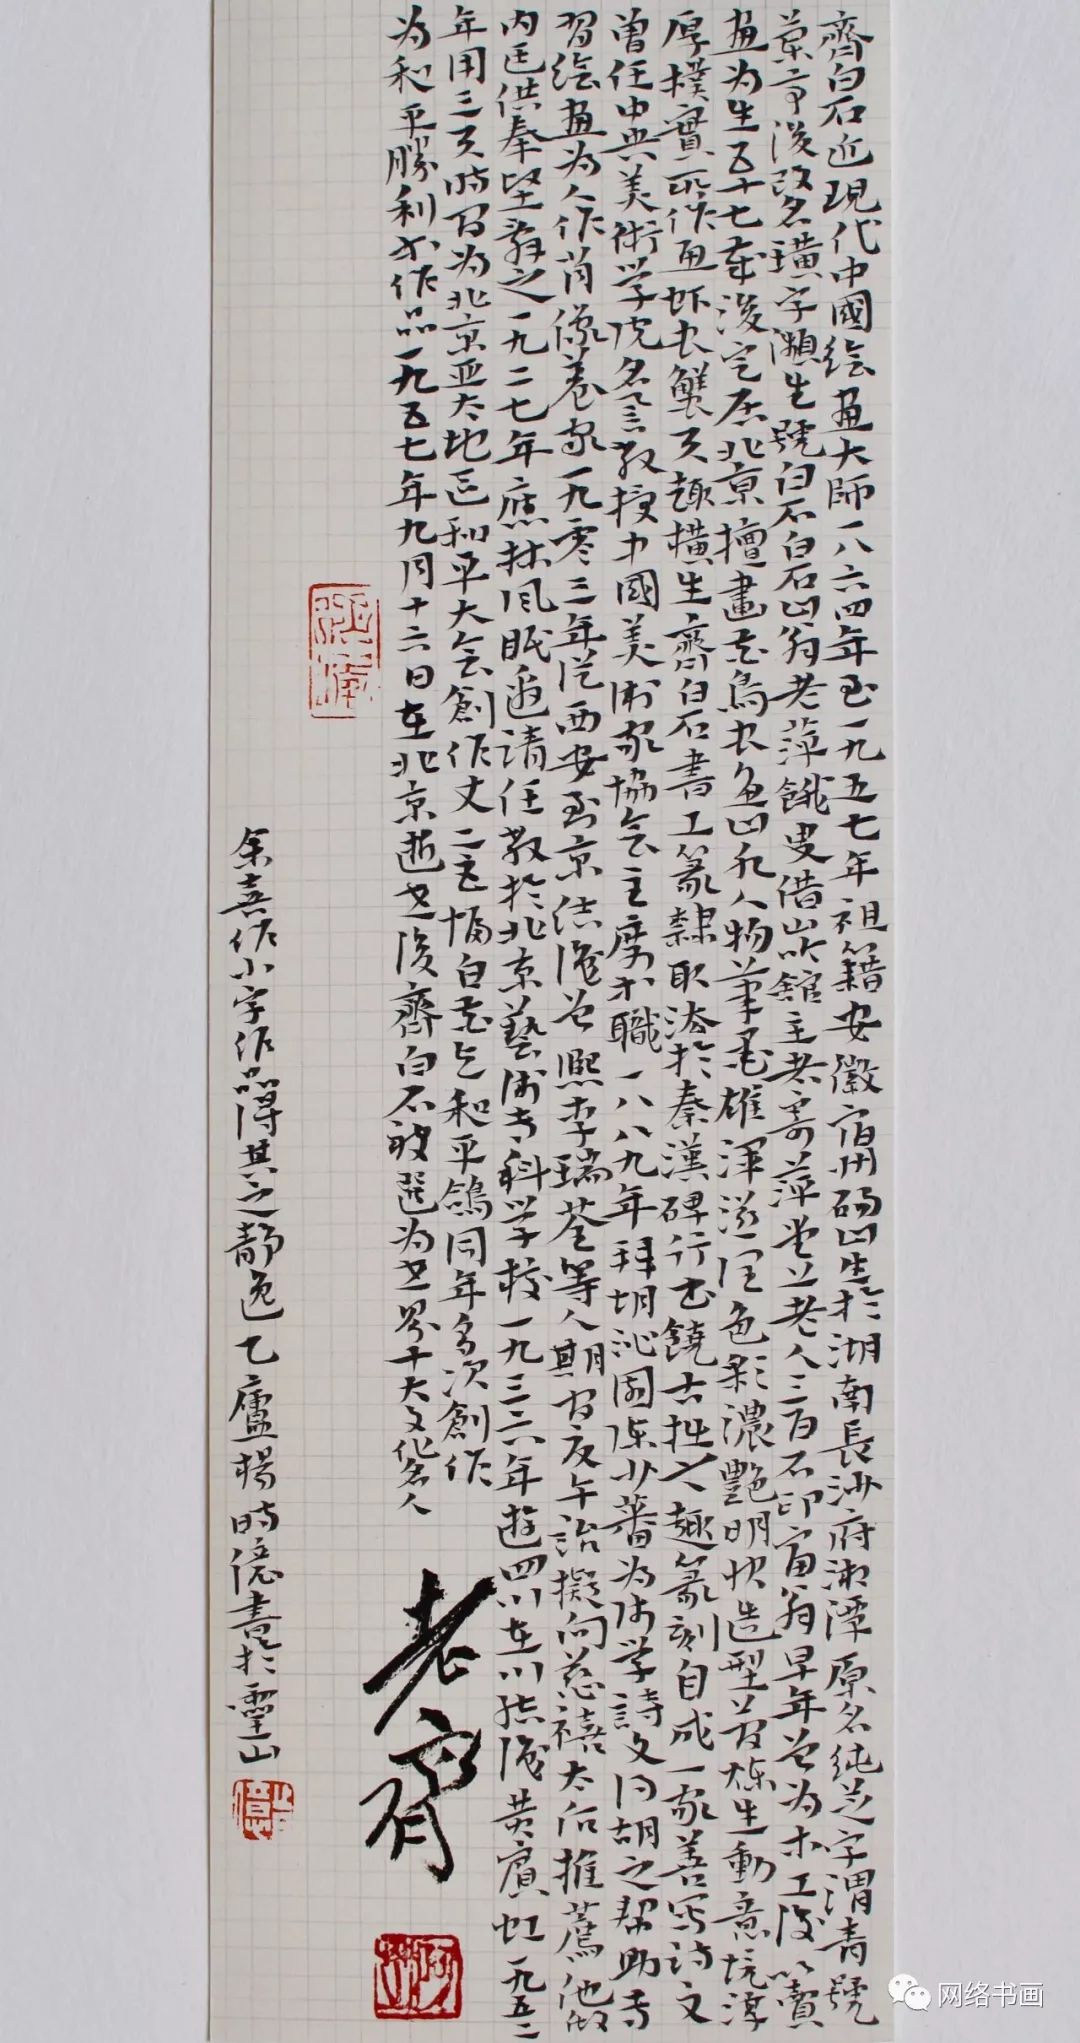 齊白石近現代中國绘畫大師一八六四年至一九五七年祖籍安徽宿州砀山生於湖南長沙府湘潭原名纯芝字渭青號
蘭亭後改名璜字瀕生號白石白石山翁老萍餓叟借山吟館主者寄萍堂上老人三百石印富翁早年曾为木工後以賣
畫为生五十七歲後定居北京擅畫花鳥虫鱼山水人物筆墨雄渾滋润色彩濃艷明快造型简炼生動意境淳
厚樸實所作鱼虾虫蟹天趣横生齊白石書工篆隸取法於秦漢碑行书饒古拙之趣篆刻自成一家善写诗文
曾任中央美術学院名誉教授中國美術家協会主席等職一八八九年拜胡沁園陈少蕃为师学詩文同胡之帮助专
習绘畫为人作肖像养家一九零三年從西安到京结識曾熙李瑞荃等人期间夏午詒擬向慈禧太后推薦他做
内廷供奉堅辞之一九二七年應林风眠邀請任教於北京藝術专科学校一九三六年遊四川在川结識黄賓虹一九五二
年用三天時间为北京亚太地区和平大会創作丈二巨幅百花与和平鴿同年多次創作
为和平勝利等作品一九五七年九月十六日在北京逝世後齊白石被選为世界十大文化名人
老齊
余喜作小字作品得其之静逸乙廬楊時億書於靈山
网络书画